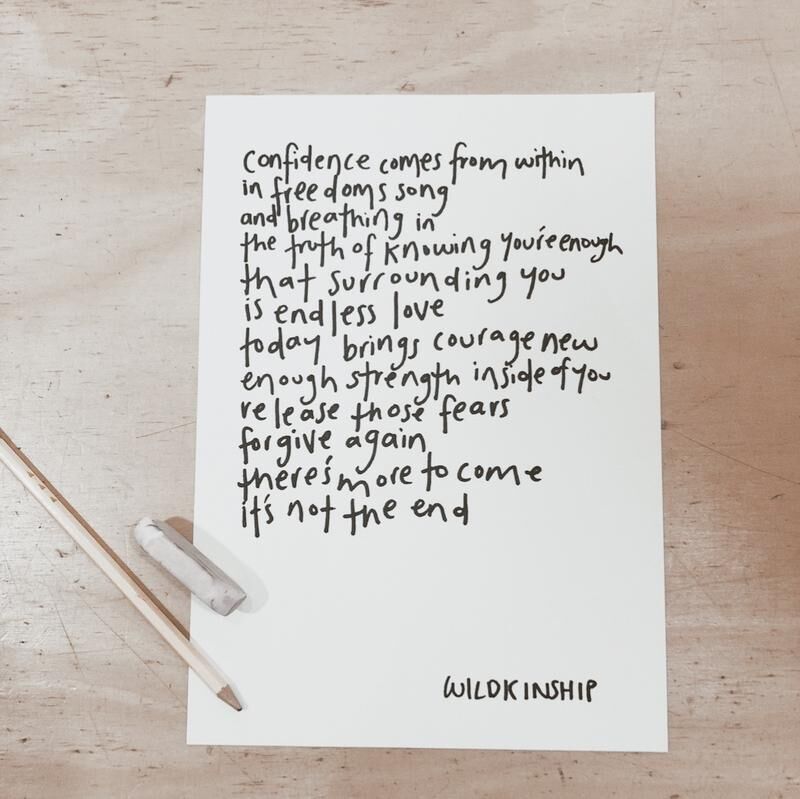 confidence comes from within
in freedoms song
and breathing in
the truth of knowing you're enough
that surrounding you
is endless love
today brings courage new
enough strength inside of you
release those fears
forgive again
there's more to come
it's not the end
WILDKINSHIP